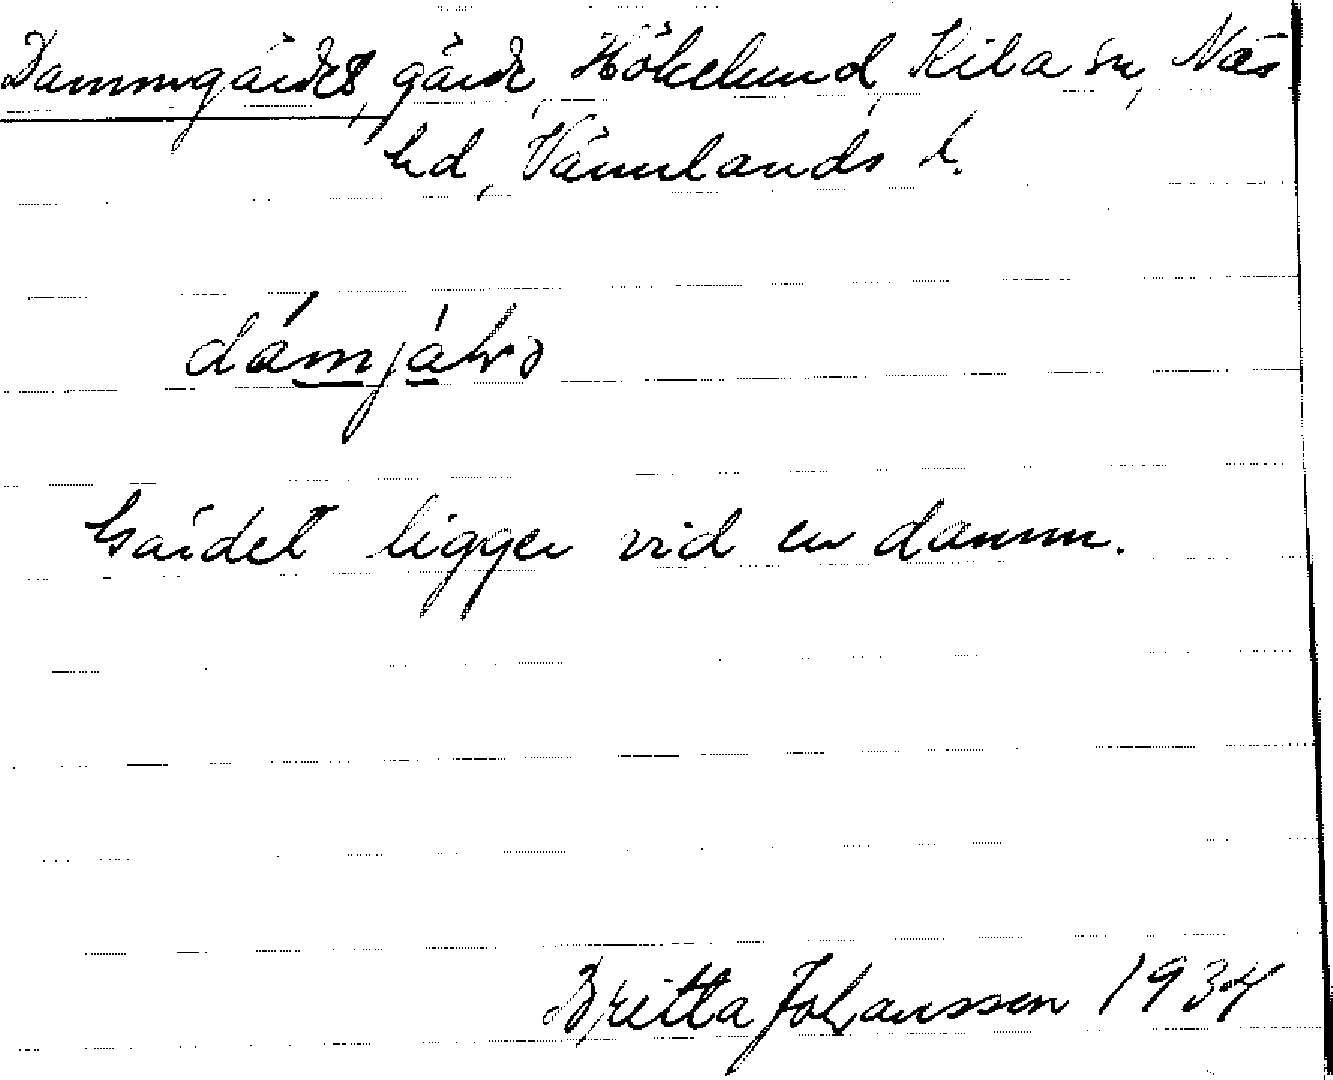 Dammgärdet, gärde, Hökelund, Kila sn, Näs
hd, Värmlands l.
dámjä́ḷə
Gärdet ligger vid en damm.
Britta Johansson 1934